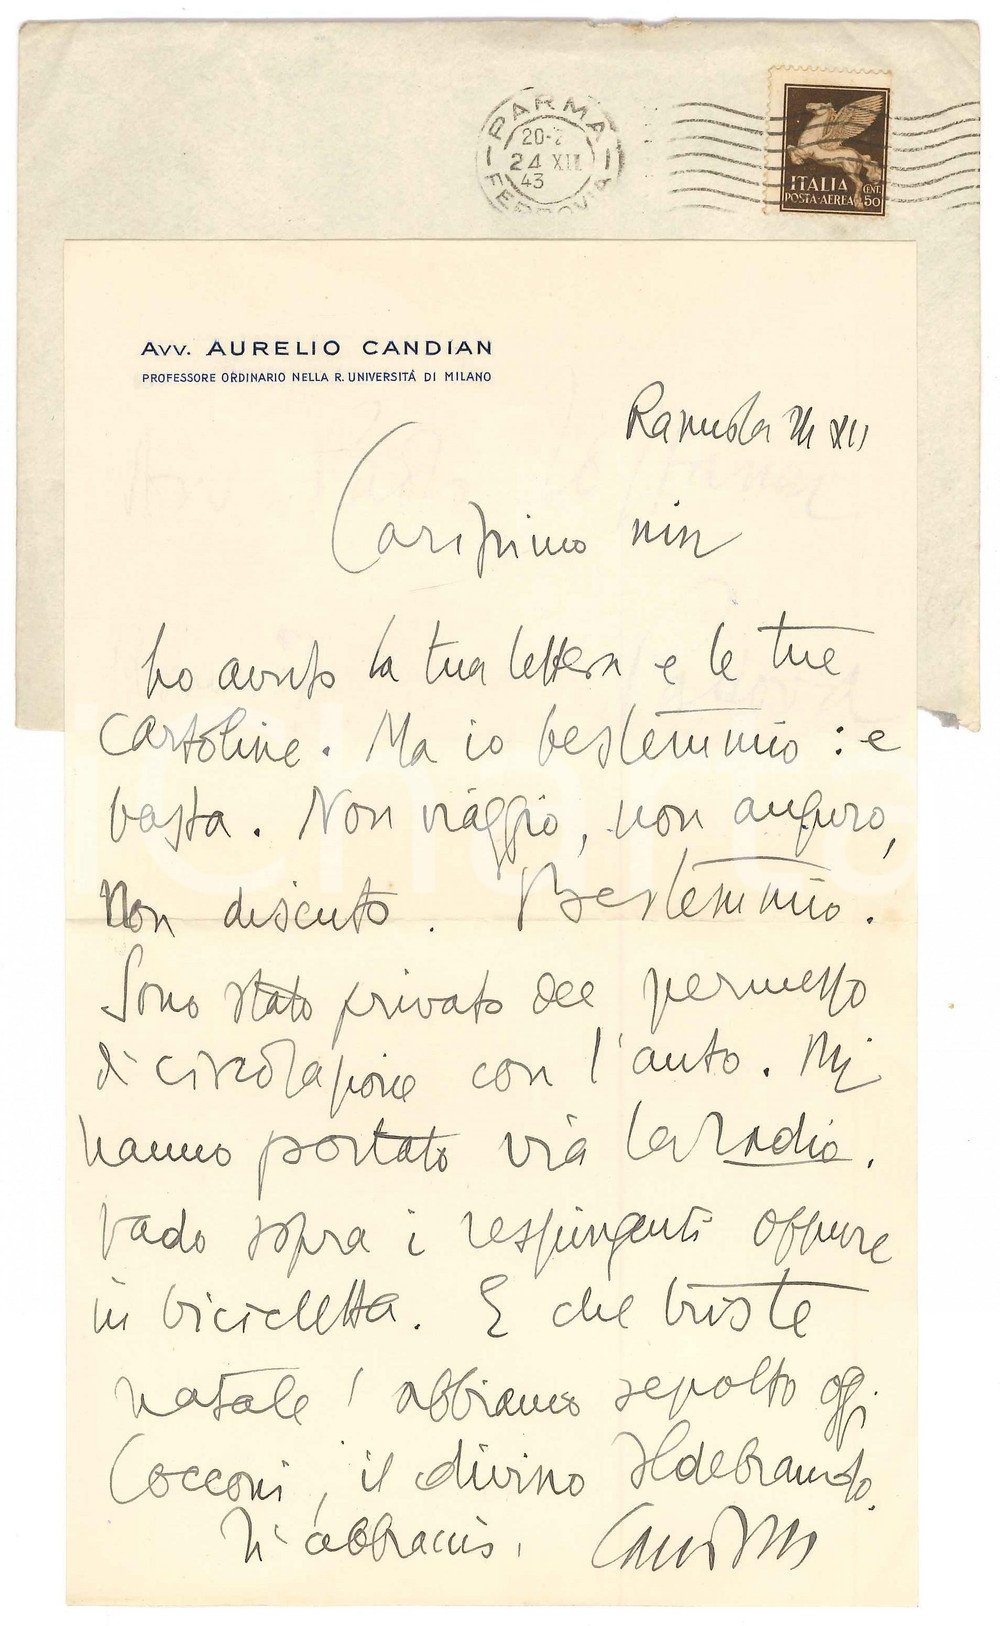 PARMA
20-2
24 XII
43
FERROVIA
ITALIA
POSTA-AEREA
CENT.
50
AVV. AURELIO CANDIAN
PROFESSORE ORDINARIO NELLA R. UNIVERSITÁ DI MILANO
XII
Carissimo
ho avuto la tua lettera e le tue
cartoline. Ma io bestemmio : e
basta. Non viaggio, non auguro,
Non discuto. Bestemmio.
Sono stato privato del permesso
di circolazione con l'auto. Mi
hanno portato via la radio.
Vado sopra i respingenti oppure
in bicicletta. E che triste
natale! abbiamo sepolto oggi
Cocconi, il divino Ildebrando.
Ti abbraccio.